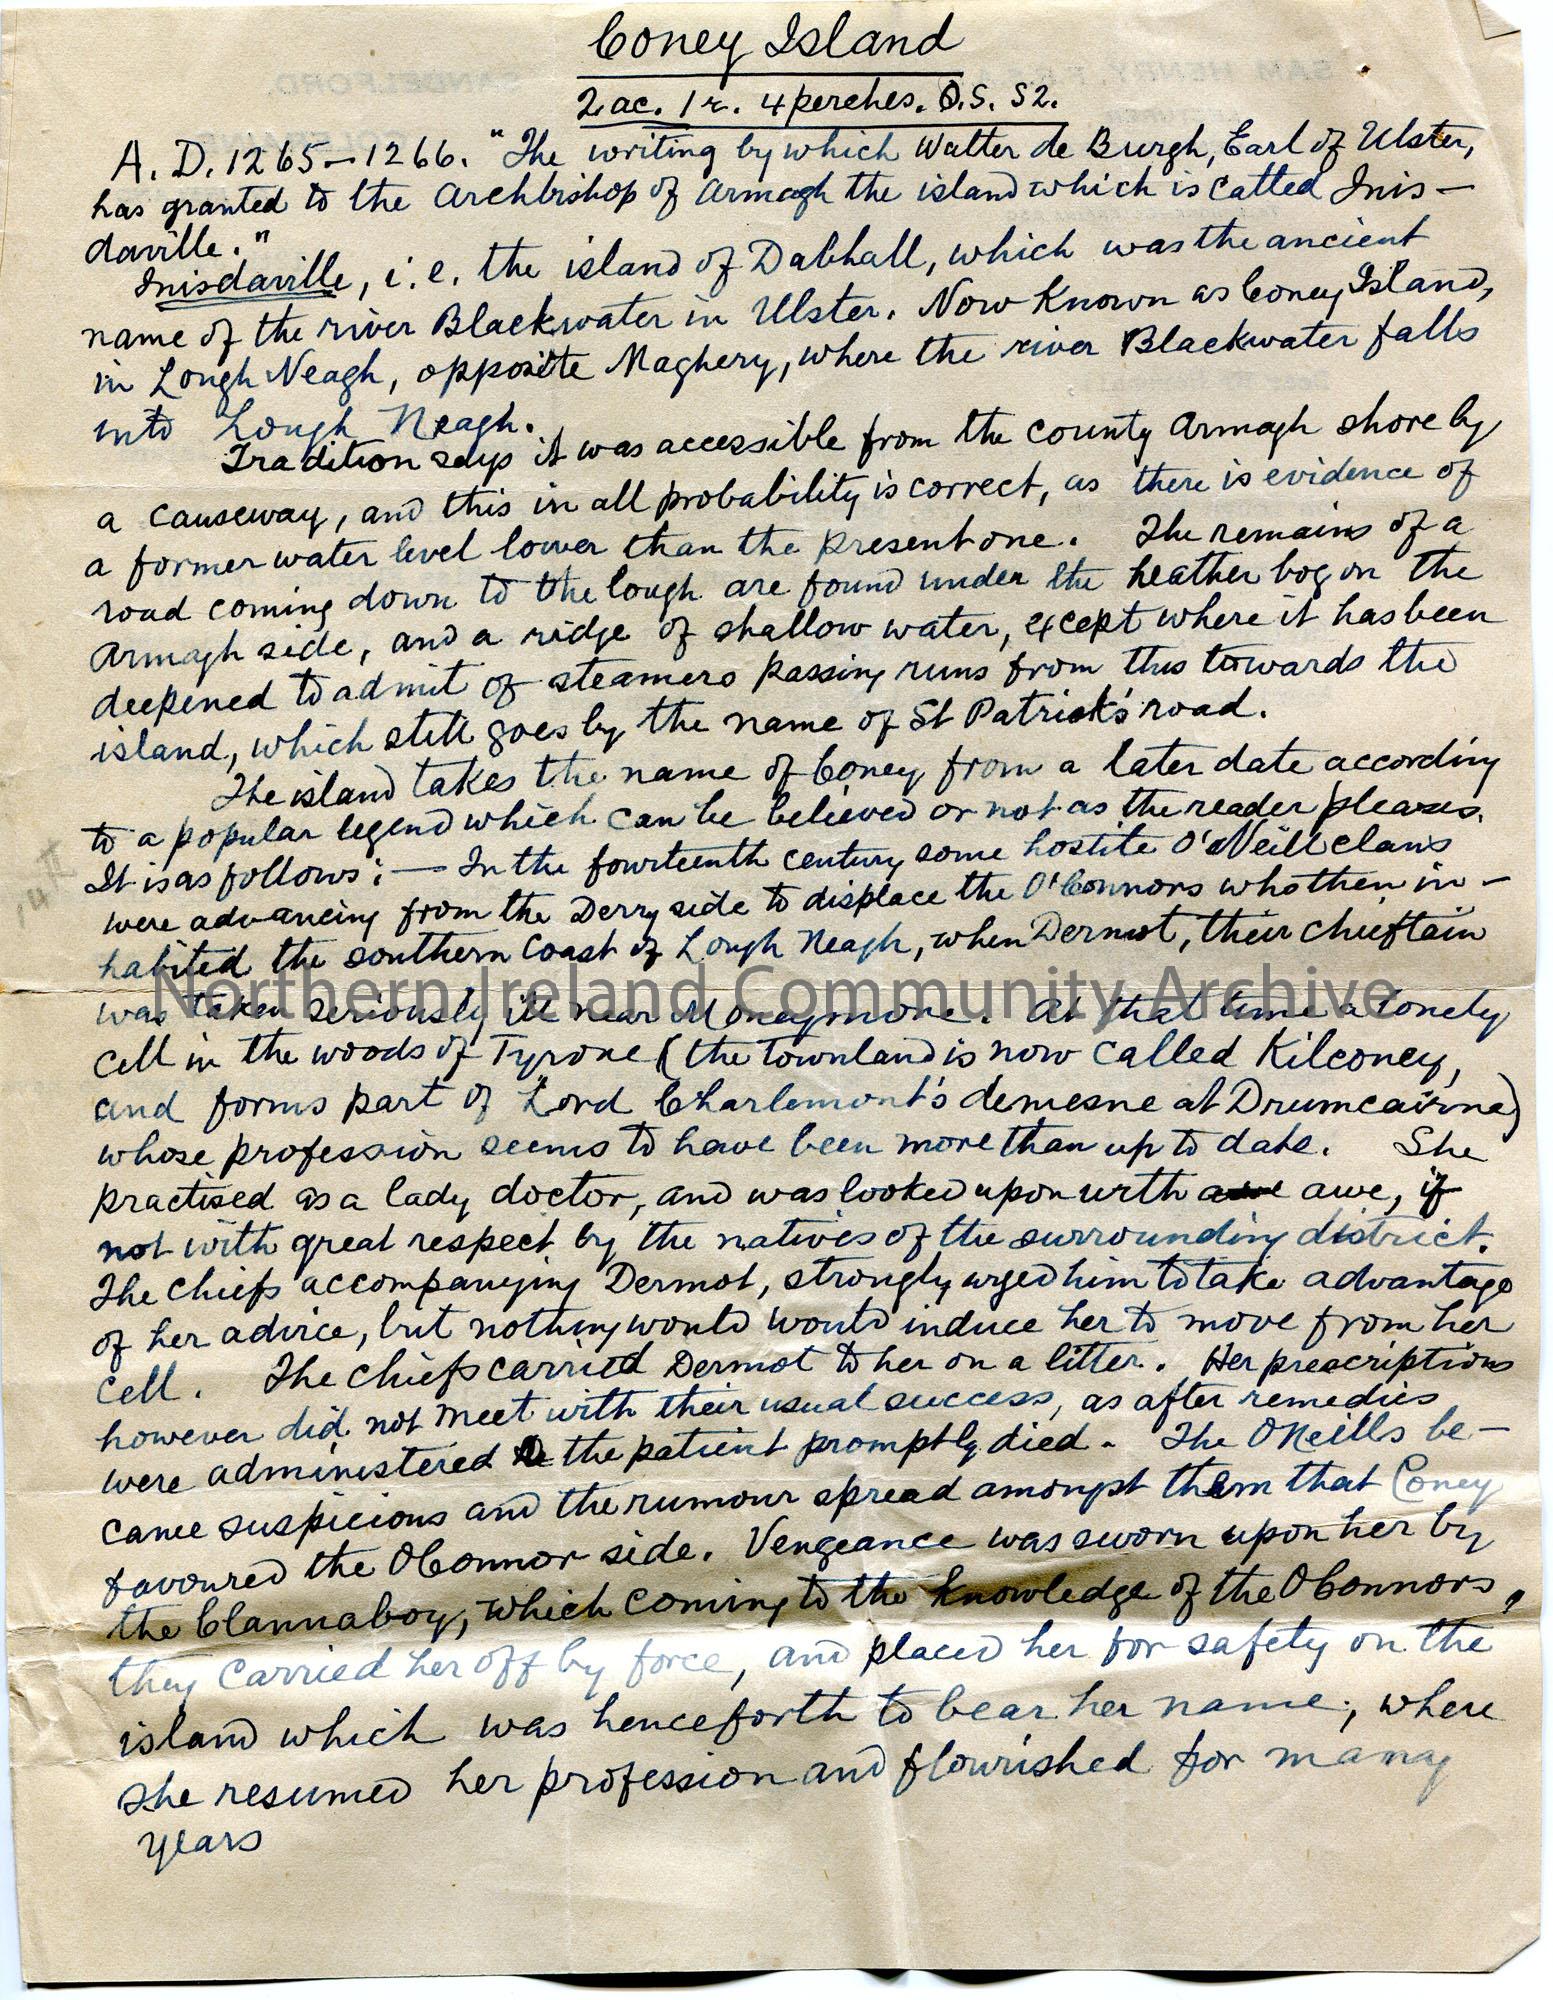 Coney Island
2 ac. 1 r. 4 perches. O.S. 52.
A.D. 1265–1266. "The writing by which Walter de Burgh, Earl of Ulster,
has granted to the Archbishop of Armagh the island which is called Inis-
daville."
Inisdaville, i.e. the island of Dabhall, which was the ancient
name of the river Blackwater in Ulster. Now Known as Coney Island,
in Lough Neagh, opposite Maghery, where the river Blackwater falls
into Lough Neagh.
Tradition says it was accessible from the county Armagh shore by
a causeway, and this in all probability is correct, as there is evidence of
a former water level lower than the present one. The remains of a
road coming down to the lough are found under the heather bog on the
Armagh side, and a ridge of shallow water, except where it has been
deepened to admit of steamers passing runs from this towards the
island, which still goes by the name of St Patrick's road.
The island takes the name of Coney from a later date according
to a popular legend which can be believed or not as the reader pleases.
It is as follows:— In the fourteenth century some hostile O'Neill clans
were advancing from the Derry side to displace the O'Connors who then in-
habited the southern coast of Lough Neagh, when Dermot, their chieftain
was taken seriously ill near Moneymore. At that time a lonely
Northern Ireland Community Archive
cell in the woods of Tyrone (the townland is now called Kilconey,
and forms part of Lord Charlemont's demesne at Drumcairne)
whose profession seems to have been more than up to date. She
practised as a lady doctor, and was looked upon with awe, if
not with great respect by the natives of the surrounding district.
The chiefs accompanying Dermot, strongly urged him to take advantage
of her advice, but nothing would would induce her to move from her
cell. The chiefs carried Dermot to her on a litter. Her prescriptions
however did not meet with their usual success, as after remedies
were administered the patient promptly died. The O'Neills be-
came suspicious and the rumour spread amongst them that Coney
favoured the O'Connor side. Vengeance was sworn upon her by
the Clannaboy, which coming to the knowledge of the O'Connors,
they carried her off by force, and placed her for safety on the
island which was henceforth to bear her name; where
she resumed her profession and flourished for many
years